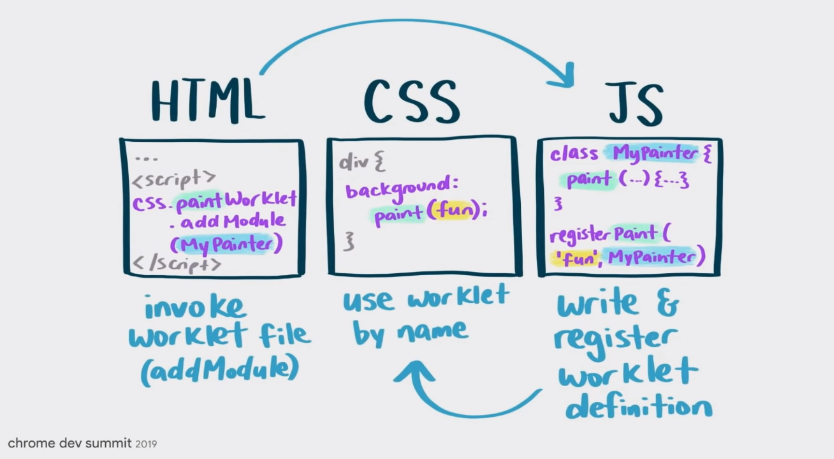 HTML
...
<script>
CSS.paintWorklet
.addModule
(MyPainter)
</script>
invoke
worklet file
(addModule)
CSS
div {
background:
paint(fun);
}
use worklet
by name
JS
class MyPainter {
paint (...) {...}
}
registerPaint(
'fun', MyPainter)
write &
register
worklet
definition
chrome dev summit 2019